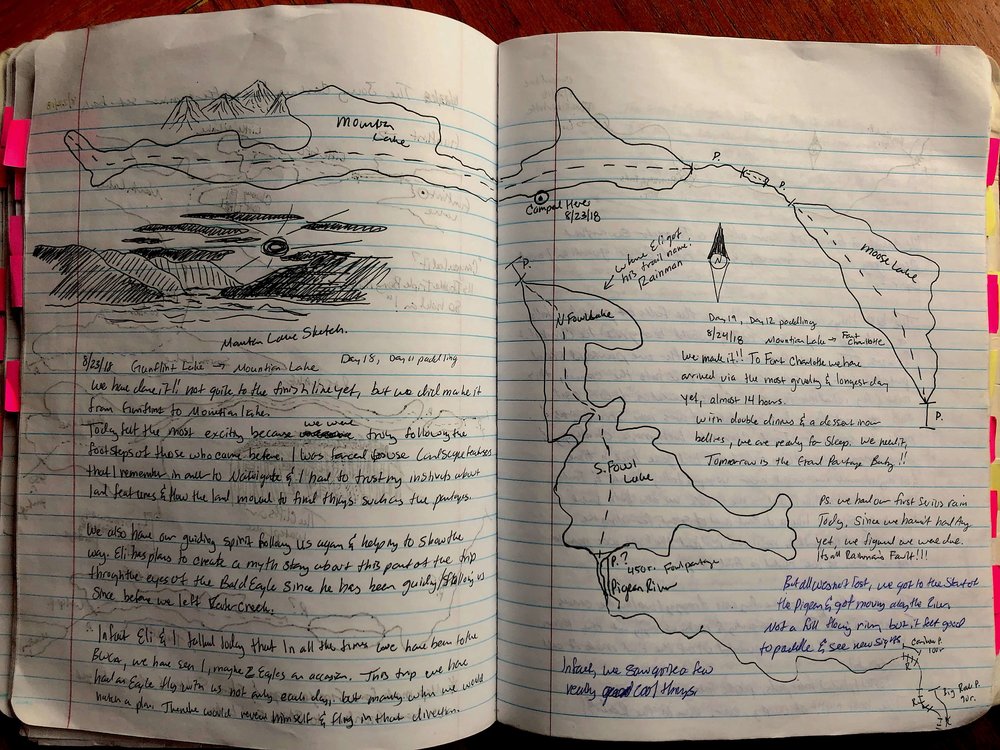 Mountain
Lake
Mountain Lake Sketch.
Day 18, Day 11 paddling
8/23/18 Gunflint Lake → Mountain Lake
we have done it!! not quite to the finish line yet, but we did make it
from Gunflint to Mountain Lake.
Today felt the most exciting because we were truly following the
footsteps of those who came before. I was forced to use Landscape features
that I remember in order to Navigate & I had to trust my instincts about
land features & how the land moved to find things such as the portages.
We also have our guiding spirit following us again & helping to show the
way. Eli has plans to create a myth story about this part of the trip
through the eyes of the Bald Eagle since he has been guiding/following us
since before we left
Infact Eli & I talked today that In all the times we have been to the
BWCA, we have seen 1, maybe 2 Eagles on occasion. This trip we have
had an Eagle fly with us not only each day, but mainly when we would
hatch a plan. Then he would reveal himself & fly in that direction.
Camped Here
8/23/18
P.
P.
P.
Moose Lake
P.
P.
where Eli got
his trail name!
Rainman
N
N. Fowl Lake
Day 19, Day 12 paddling
8/24/18 Mountain Lake → Fort
Charlotte
We made it!! To Fort Charlotte we have
arrived via the most grueling & longest day
yet, almost 14 hours.
with double dinners & a dessert in our
bellies, we are ready for sleep. We need it,
Tomorrow is the Grand Portage Baby!!
S. Fowl
Lake
P.?
450r. Fowl portage
Pigeon River
PS. we had our first serious rain
Today. Since we haven't had Any
yet, we figured we were due.
Its all Rainman's Fault!!!
But all was not lost, we got to the Start of
the Pigeon & got moving along the River.
Not a full flowing river, but it felt good
to paddle & see new sights.
Infact, we saw quite a few
really cool things
Caribou P.
Big Rock P.